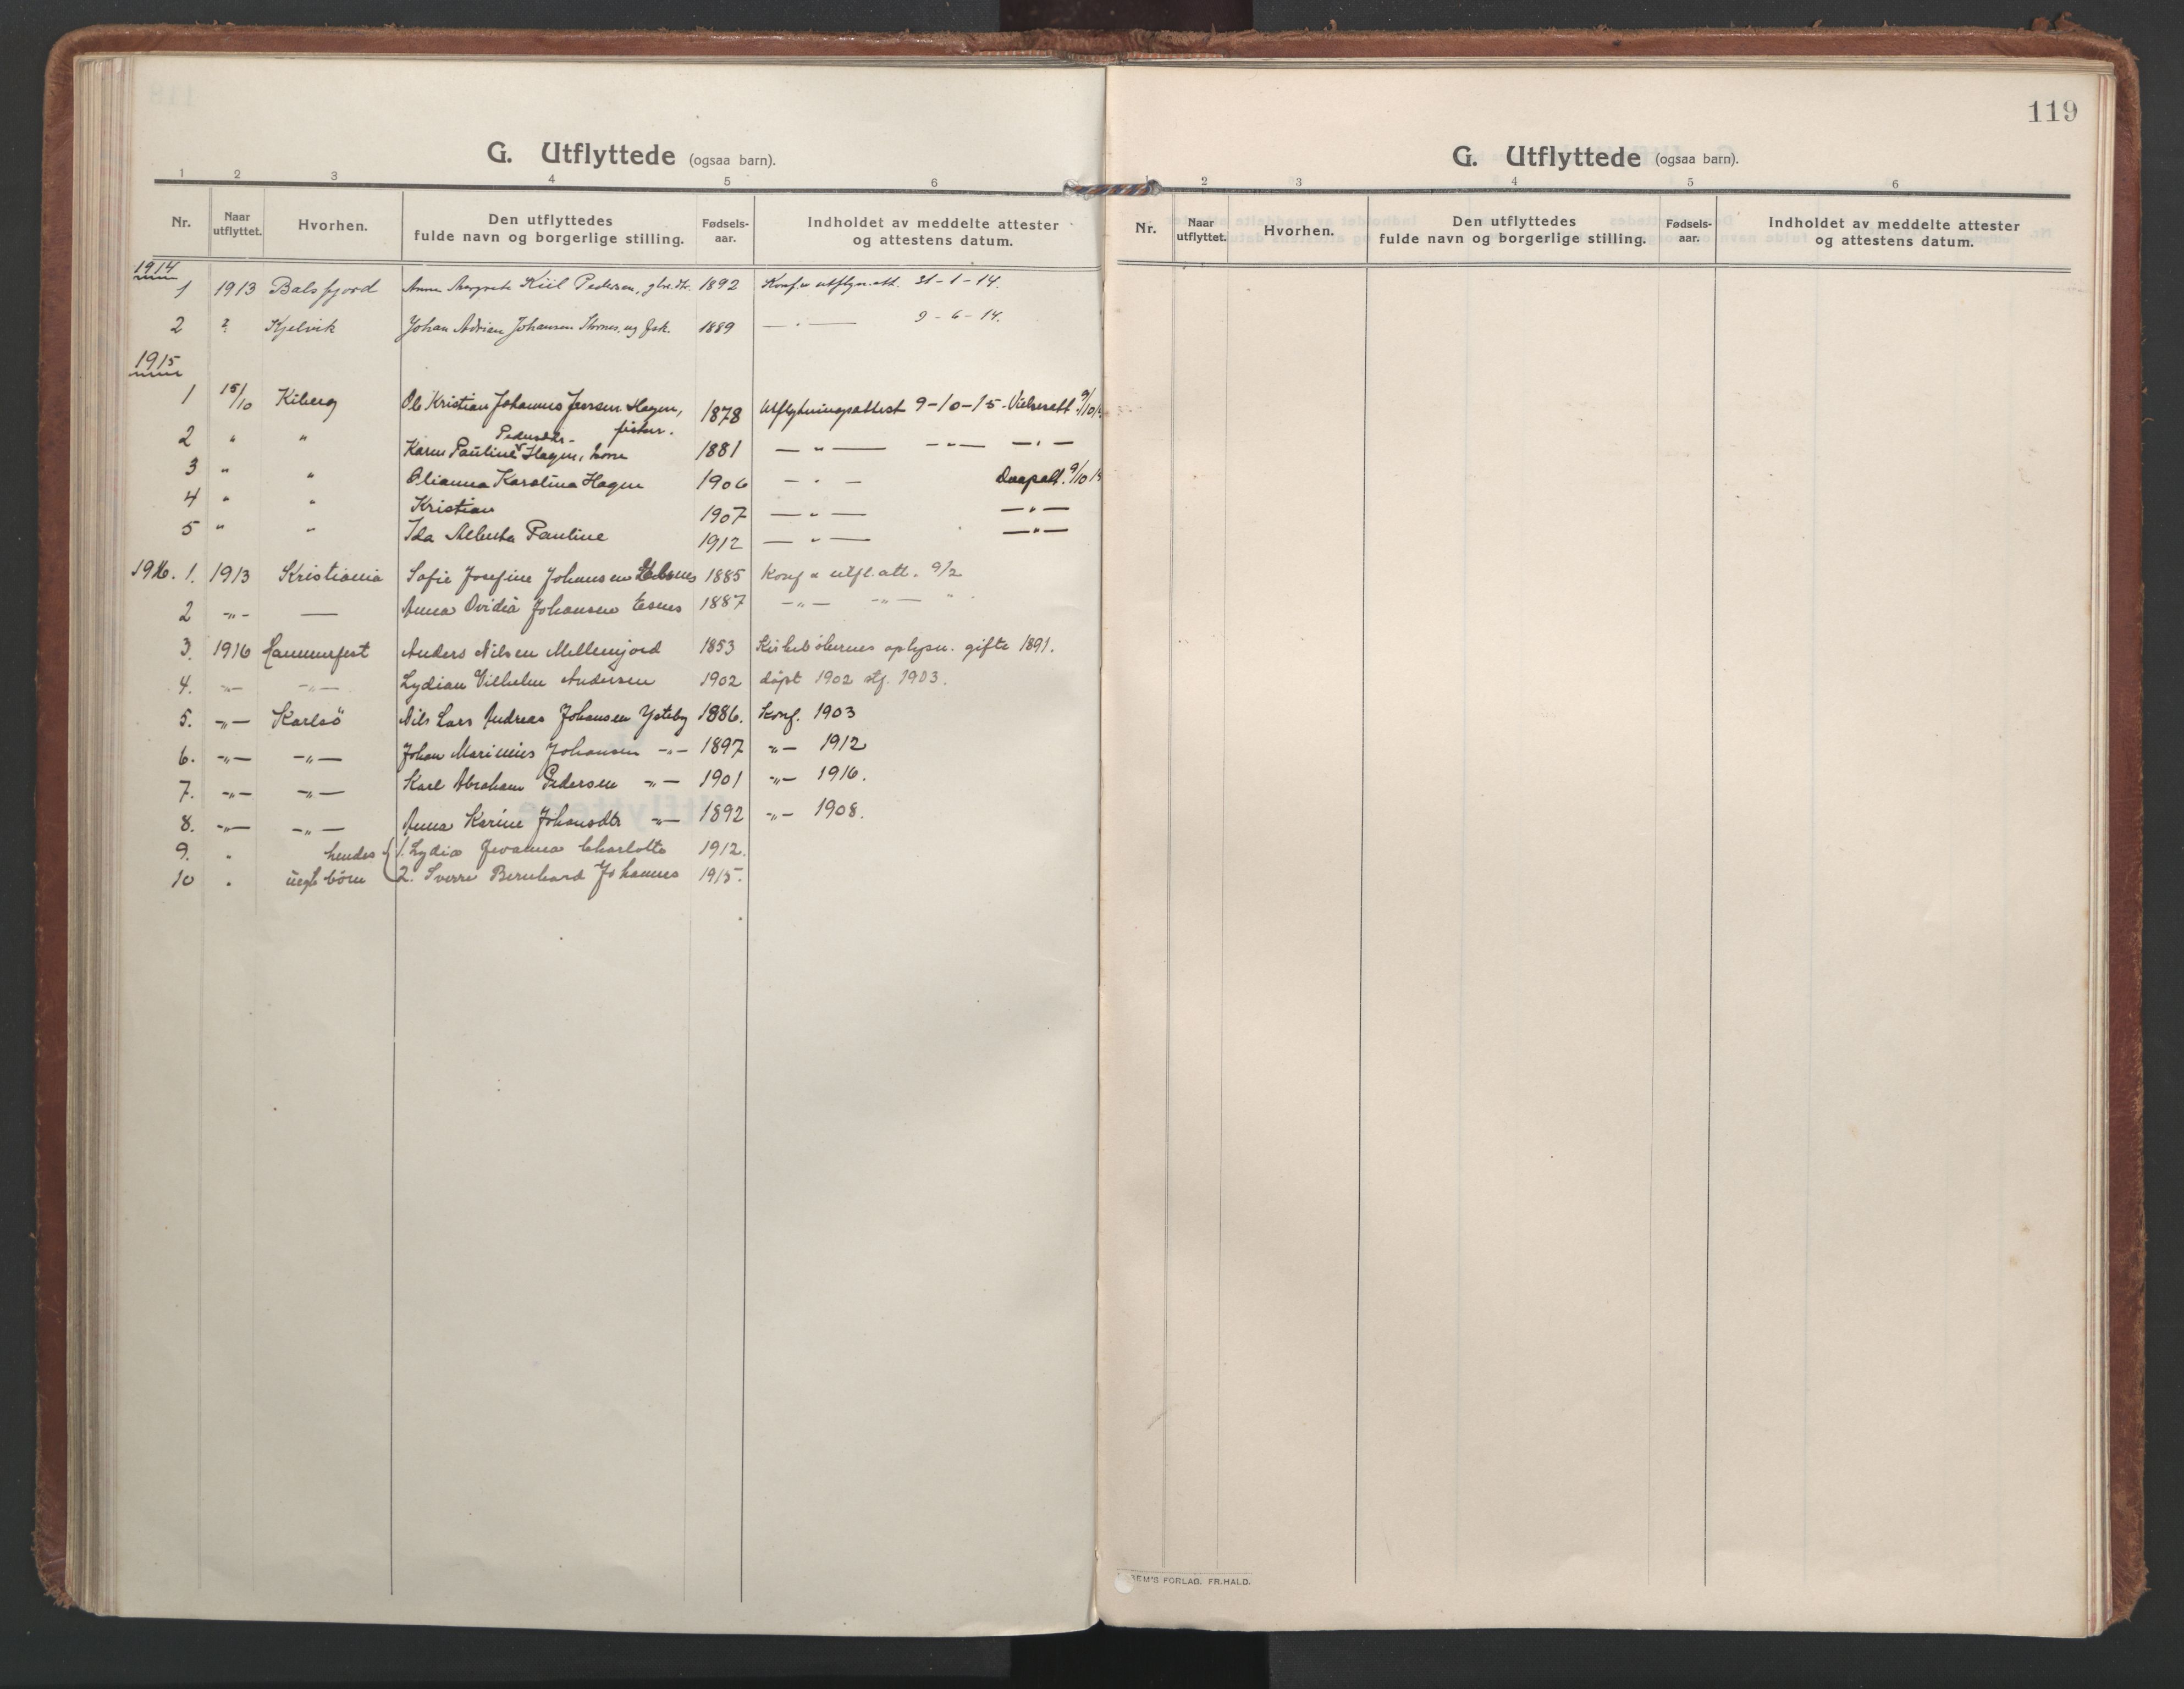 G. Utflyttede (ogsaa barn).
1 2 3 4 5 6
Nr. Naar utflyttet. Hvorhen. Den utflyttedes fulde navn og borgerlige stilling. Fødsels-aar. Indholdet av meddelte attester og attestens datum.
1914
1 1913 Balsfjord Anna Margrete Kiil Pedersen, 1892 Konf. & utflytn.att. 31-1-14.
2 ? Kjelvik Johan Adrian Johansen ug fsk. 1889 — " — 9-6-14.
1915
1 15/10 Kiberg Ole Kristian Johannes Jensen Hagen, fisker. 1878 Utflytningsattest 9-10-15. Vielsesatt. 9/10
2 " " Karen Pauline Pedersdtr. Hagen, kone 1881 — " — — " — — " —
3 " " Olianna Karolina Hagen 1906 — " — Daapsatt. 9/10
4 " " Kristian 1907 — " — — " —
5 " " Ida Alberta Pauline 1912 — " — — " —
1916. 1. 1913 Kristiania Sofie Josefine Johansen 1885 Konf & utfl. att. 9/2
2 -"- — Anna Ovidia Johansen Esnes 1887 -"- -"- "
3. 1916 Hammerfest Anders Nilsen Mellemjord 1853 Kirkebökernes oplysn. gifte 1891.
4. -"- -"- Lydian Vilhelm Andersen 1902 döpt 1902 stf. 1903.
5. -"- Karlsö Nils Lars Andreas Johansen Ysteby 1886. Konf. 1903
6. -"- -"- Johan Marinius Johansen -"- 1897 -"- 1912
7. -"- -"- Karl Abraham Pedersen -"- 1901 -"- 1916.
8. -"- -"- Anna Karine Johansdtr -"- 1892 -"- 1908.
9. " hendes 1. Lydia Jovanna Charlotte 1912.
10 " uegte börn 2. Sverre Bernhard Johannes 1915.
119
G. Utflyttede (ogsaa barn).
1 2 3 4 5 6
Nr. Naar utflyttet. Hvorhen. Den utflyttedes fulde navn og borgerlige stilling. Fødsels-aar. Indholdet av meddelte attester og attestens datum.
FORLAG. FR.HALD.